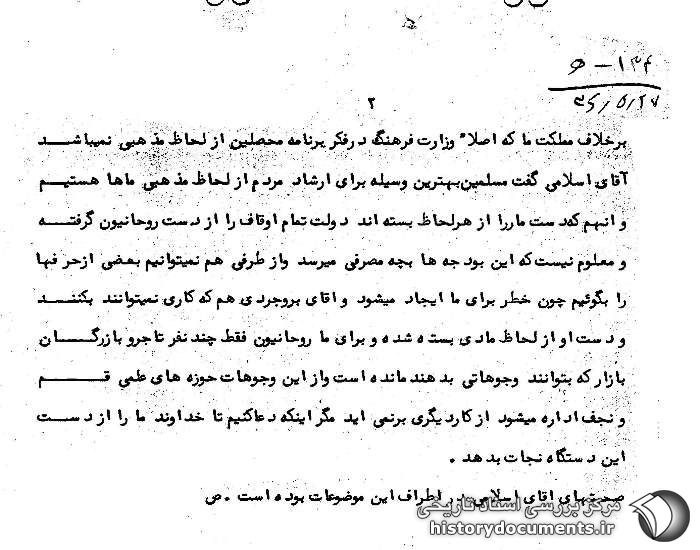 ۱۳۴ – ھ
۳۶/۵/۲۷
۲
برخلاف مملکت ما که اصلاً وزارت فرهنگ در فکر برنامه محصلین از لحاظ مذهبی نمیباشد
آقای اسلامی گفت مسلمین بهترین وسیله برای ارشاد مردم از لحاظ مذهبی ماها هستیم
و انهم که دست ما را از هر لحاظ بسته اند دولت تمام اوقاف را از دست روحانیون گرفته
و معلوم نیست که این بودجه ها بچه مصرفی میرسد و از طرفی هم نمیتوانیم بعضی از حرفها
را بگوئیم چون خطر برای ما ایجاد میشود و اقای بروجردی هم که کاری نمیتوانند بکنند
و دست او از لحاظ مادی بسته شده و برای ما روحانیون فقط چند نفر تاجر و بازرگان
بازار که بتوانند وجوهاتی بدهند مانده است و از این وجوهات حوزه های علمی قم
و نجف اداره میشود از کار دیگری برنمی اید مگر اینکه دعا کنیم تا خداوند ما را از دست
این دستگاه نجات بدهد .
صحبتهای اقای اسلامی در اطراف این موضوعات بوده است . ص
مرکز بررسی اسناد تاریخی
historydocuments.ir